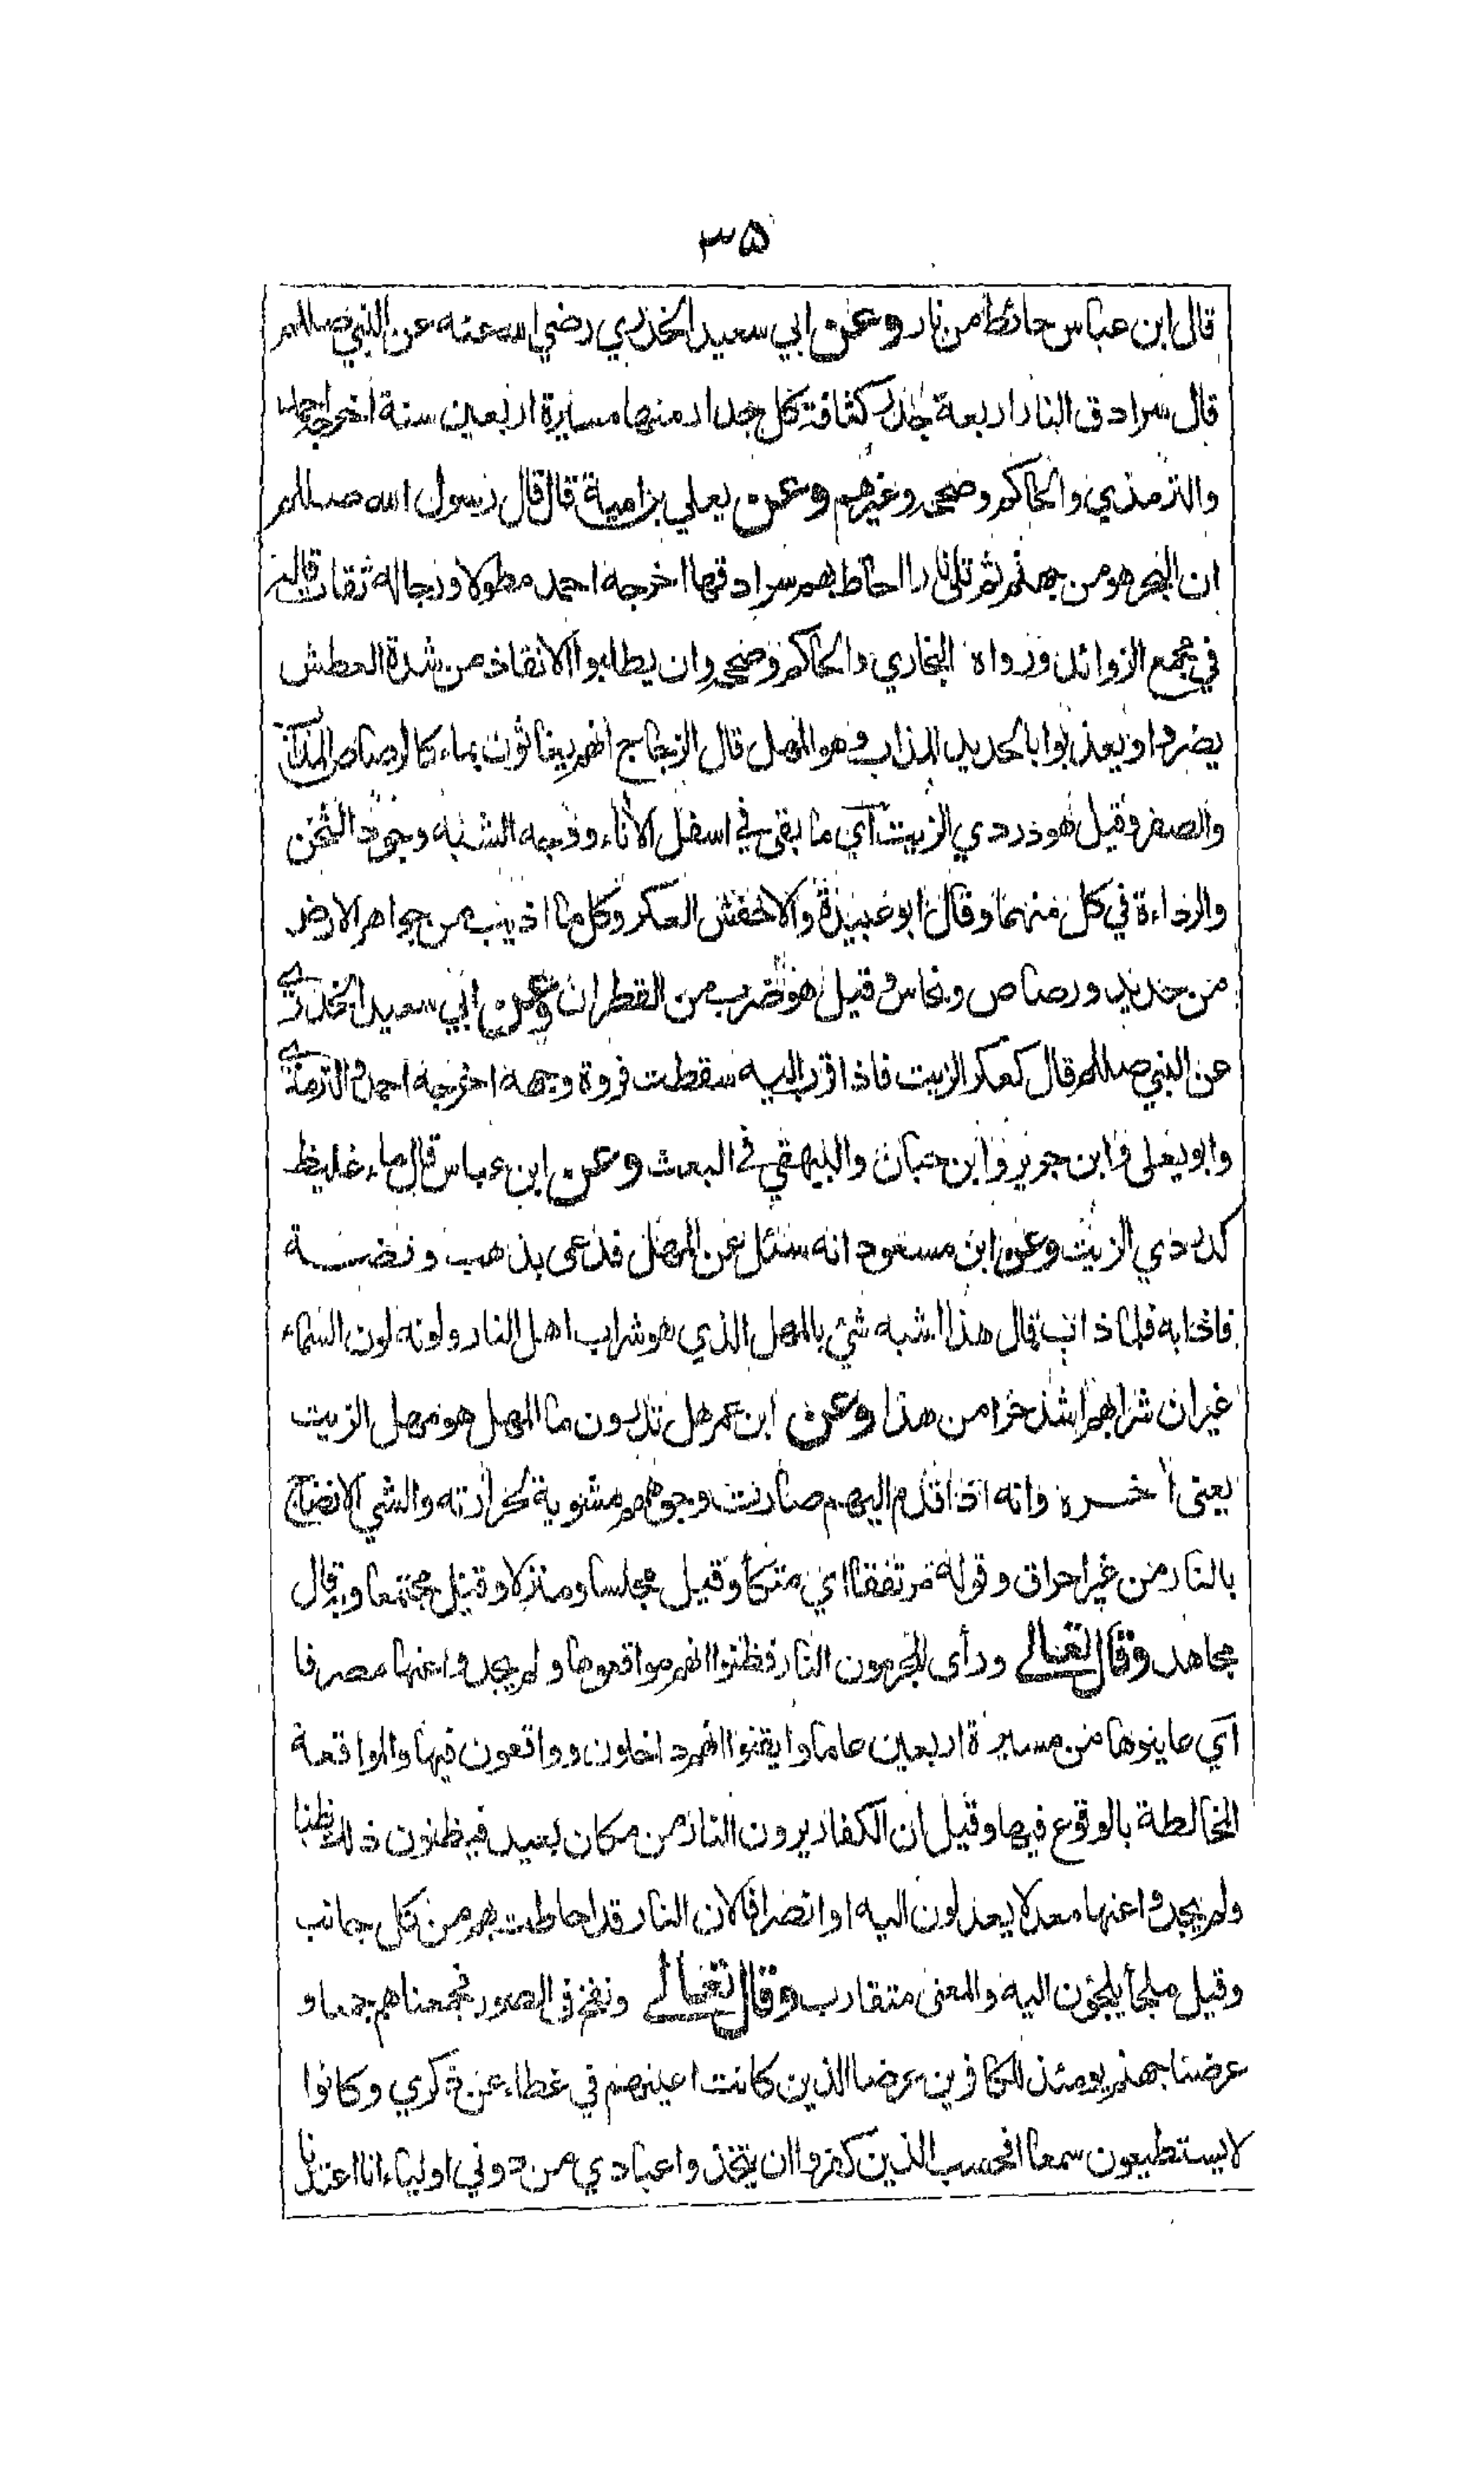 ۳۵
قال ابن عباس حائط من نار وعن ابي سعيد الخدري رضي الله عنه عن النبي صللم
قال سرادق النار اربعة جدر كثافة كل جدار منها مسيرة اربعين سنة اخرجه احمد
والترمذي والحاكم وصححه وغيرهم وعن يعلي بن امية قال قال رسول الله صللم
ان البحر هو من جهنم ثم تلى نارا احاط بهم سرادقها اخرجه احمد مطولا ورجاله ثقات قاله
في مجمع الزوائد ورواه البخاري والحاكم وصححه وان يطلبوا الانقاذ من شدة العطش
يضروا ويعذبوا بالحديد المذاب وهو المهل قال الزجاج انهم يغاثون بماء كالرصاص المذاب
والصفر وقيل هو دردي الزيت اي ما بقى في اسفل الاناء ووجه الشبه وجود الثخن
والرداءة في كل منهما وقال ابو عبيدة والاخفش العكر وكل ما اذيب من جواهر الارض
من حديد ورصاص ونحاس وقيل هو ضرب من القطران وعن ابي سعيد الخدري
عن النبي صللم قال كعكر الزيت فاذا قرب اليه سقطت فروة وجهه اخرجه احمد والترمذي
وابو يعلى وابن جرير وابن حبان والبيهقي في البعث وعن ابن عباس قال ماء غليظ
كدردي الزيت وعن ابن مسعود انه سئل عن المهل فدعى بذهب وفضة
فاذابه فلما ذاب قال هذا اشبه شئ بالمهل الذي هو شراب اهل النار ولونه لون السماء
غير ان شرابهم اشد حرا من هذا وعن ابن عمر هل تدرون ما المهل هو مهل الزيت
يعنى أخره وانه اذا قدم اليهم صارت وجوههم مشوية لحرارته والشي الانضاج
بالنار من غير احراق وقوله مرتفقا اي متكأ وقيل مجلسا ومنزلا وقيل مجتمعا وبه قال
مجاهد وقال تعالى ورأى المجرمون النار فظنوا انهم مواقعوها ولم يجدوا عنها مصرفا
اي عاينوها من مسيرة اربعين عاما وايقنوا انهم داخلون وواقعون فيها والمواقعة
المخالطة بالوقوع فيها وقيل ان الكفار يرون النار من مكان بعيد فيظنون ذلك ظنا
ولم يجدوا عنها معدلا يعدلون اليه او انصرافا لان النار قد احاطت بهم من كل جانب
وقيل ملجأ يلجؤن اليه والمعنى متقارب وقال تعالى ونفخ في الصور فجمعناهم جمعا و
عرضنا جهنم يومئذ للكافرين عرضا الذين كانت اعينهم في غطاء عن ذكري وكانوا
لا يستطيعون سمعا افحسب الذين كفروا ان يتخذوا عبادي من دوني اولياء انا اعتدنا